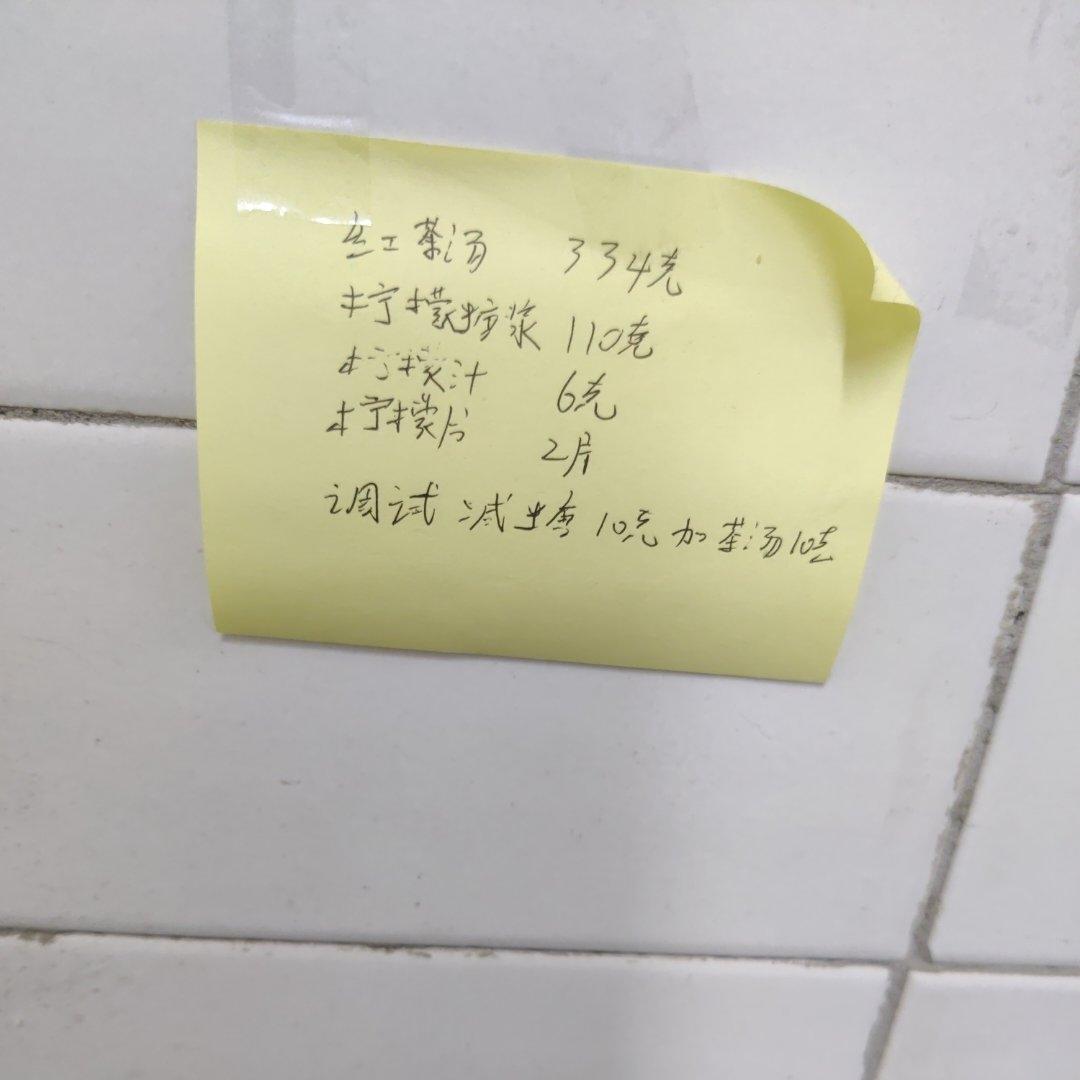 红茶汤 334克
柠檬糖浆 110克
柠檬汁 6克
柠檬片 2片
调试 减糖10克 加茶汤10克